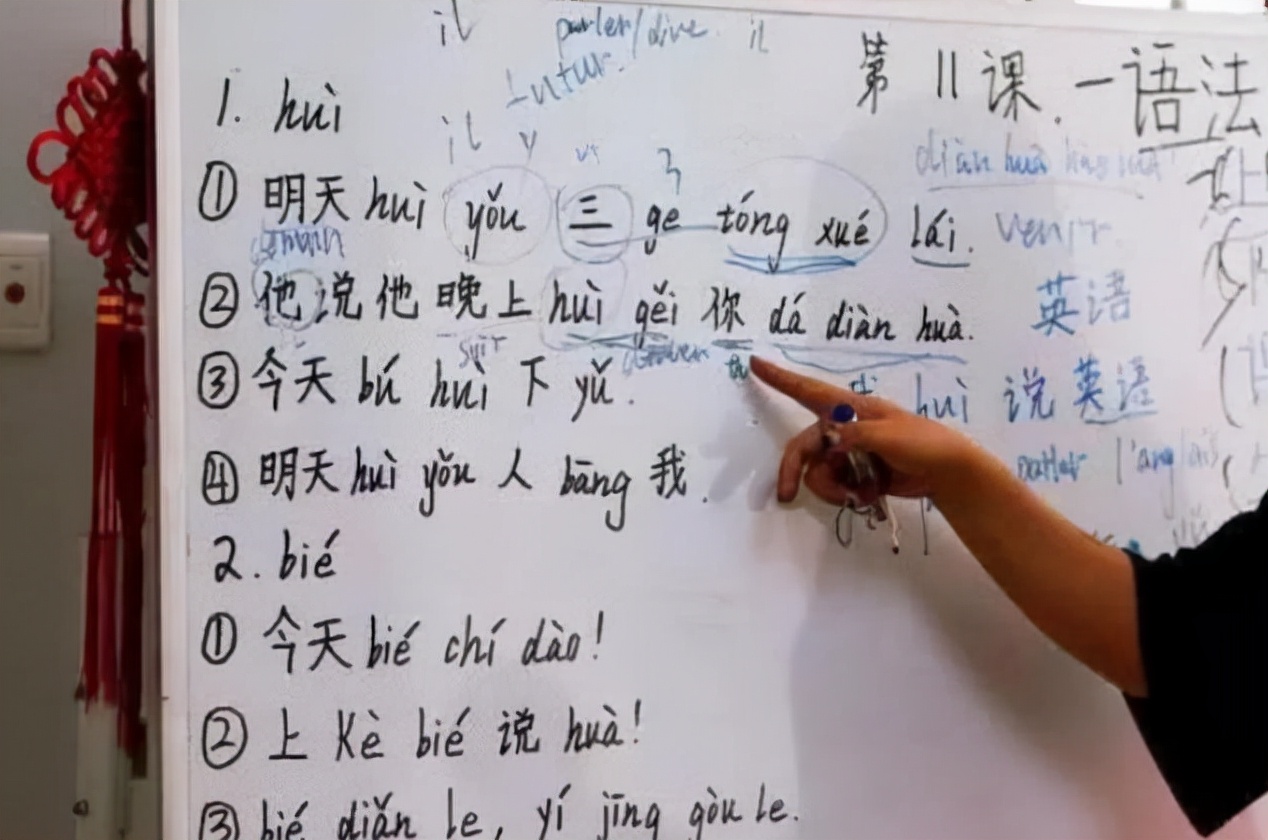 il parler/dire il
futur.
第11课.一语法
1. huì
il y
① 明天 huì yǒu 三 ge tóng xué lái. venir
② 他说他晚上 huì gěi 你 dá diàn huà. 英语
③ 今天 bú huì 下 yǔ. huì 说英语
④ 明天 huì yǒu 人 bāng 我. parler l'anglais
2. bié
① 今天 bié chí dào!
② 上 Kè bié 说 huà!
③ bié diǎn le, yí jīng gòu le.